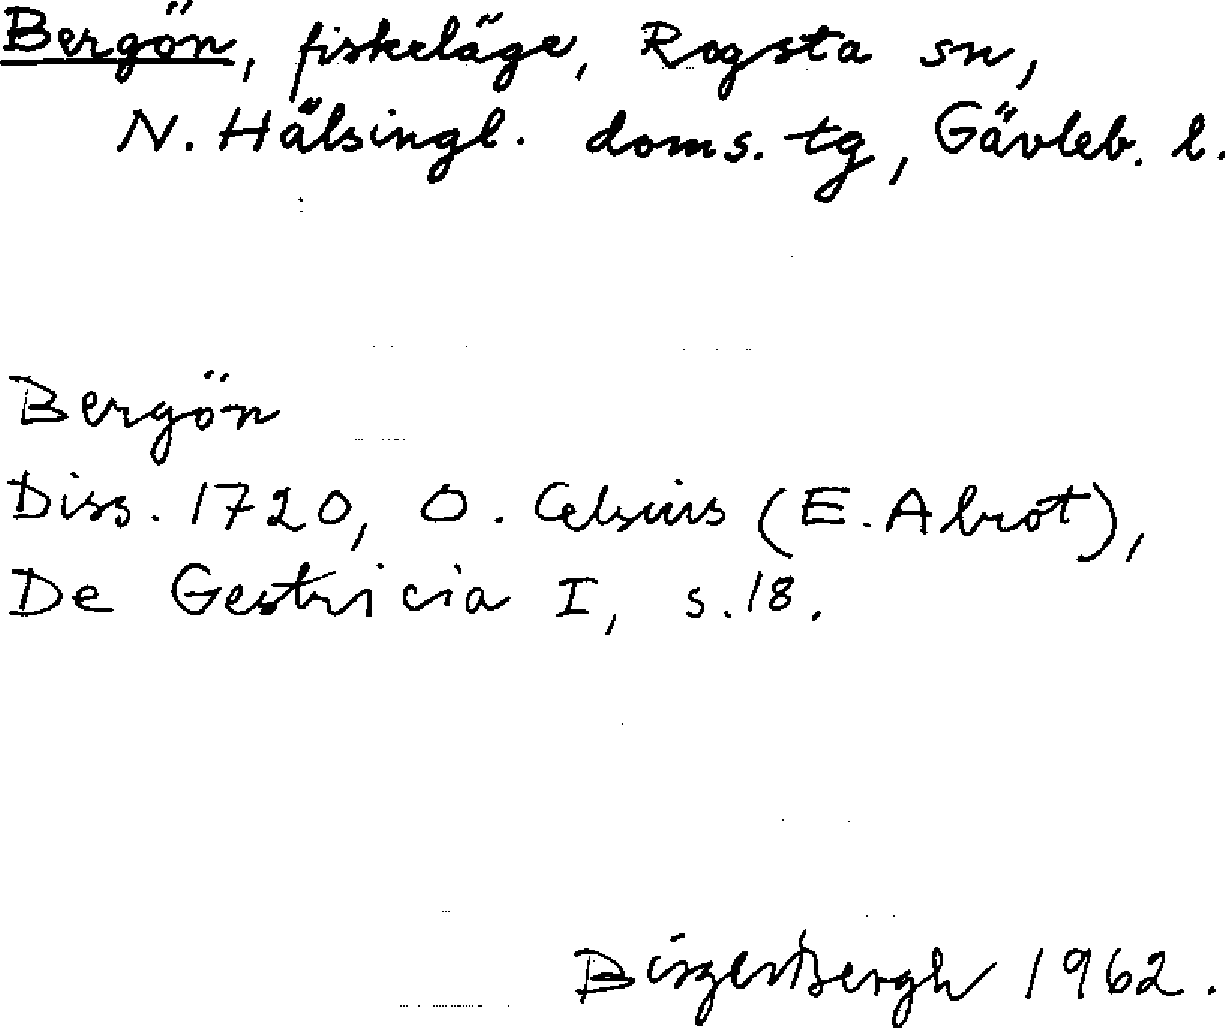 Bergön, fiskeläge, Rogsta sn,
N. Hälsingl. doms. tg, Gävleb. l.
Bergön
Diss. 1720, O. Celsius (E. Abrot),
De Gestricia I, s. 18.
Birger Bergh 1962.